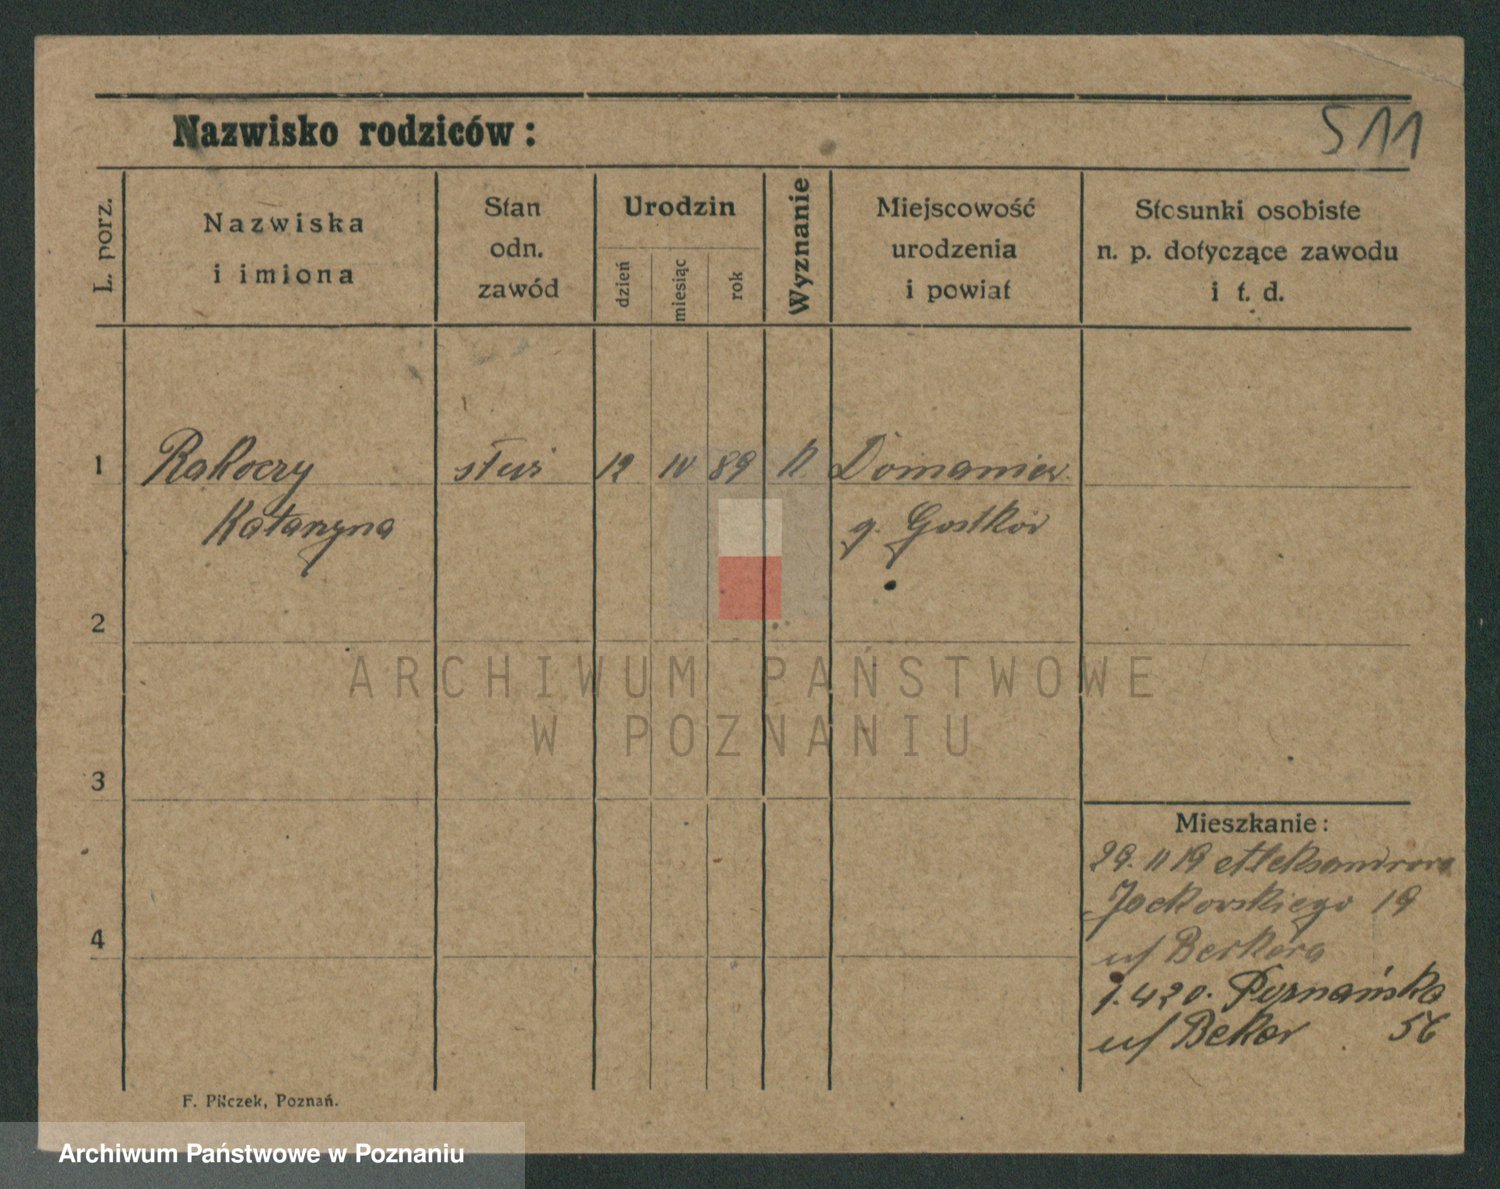 511
Nazwisko rodziców:
L. porz.
Nazwiska
i imiona
Stan
odn.
zawód
Urodzin
dzień
miesiąc
rok
Wyznanie
Miejscowość
urodzenia
i powiat
Stosunki osobiste
n. p. dotyczące zawodu
i t. d.
1
Rakoczy służ 12 IV 89 K. Domaniew
Katarzyna g. Gostków
2
3
4
Mieszkanie:
29. 11 19
Jackowskiego 19
u/ Berkera
7.4 20. Poznańska
u/ Beker 56
F. Pilczek, Poznań.
ARCHIWUM PAŃSTWOWE
W POZNANIU
Archiwum Państwowe w Poznaniu